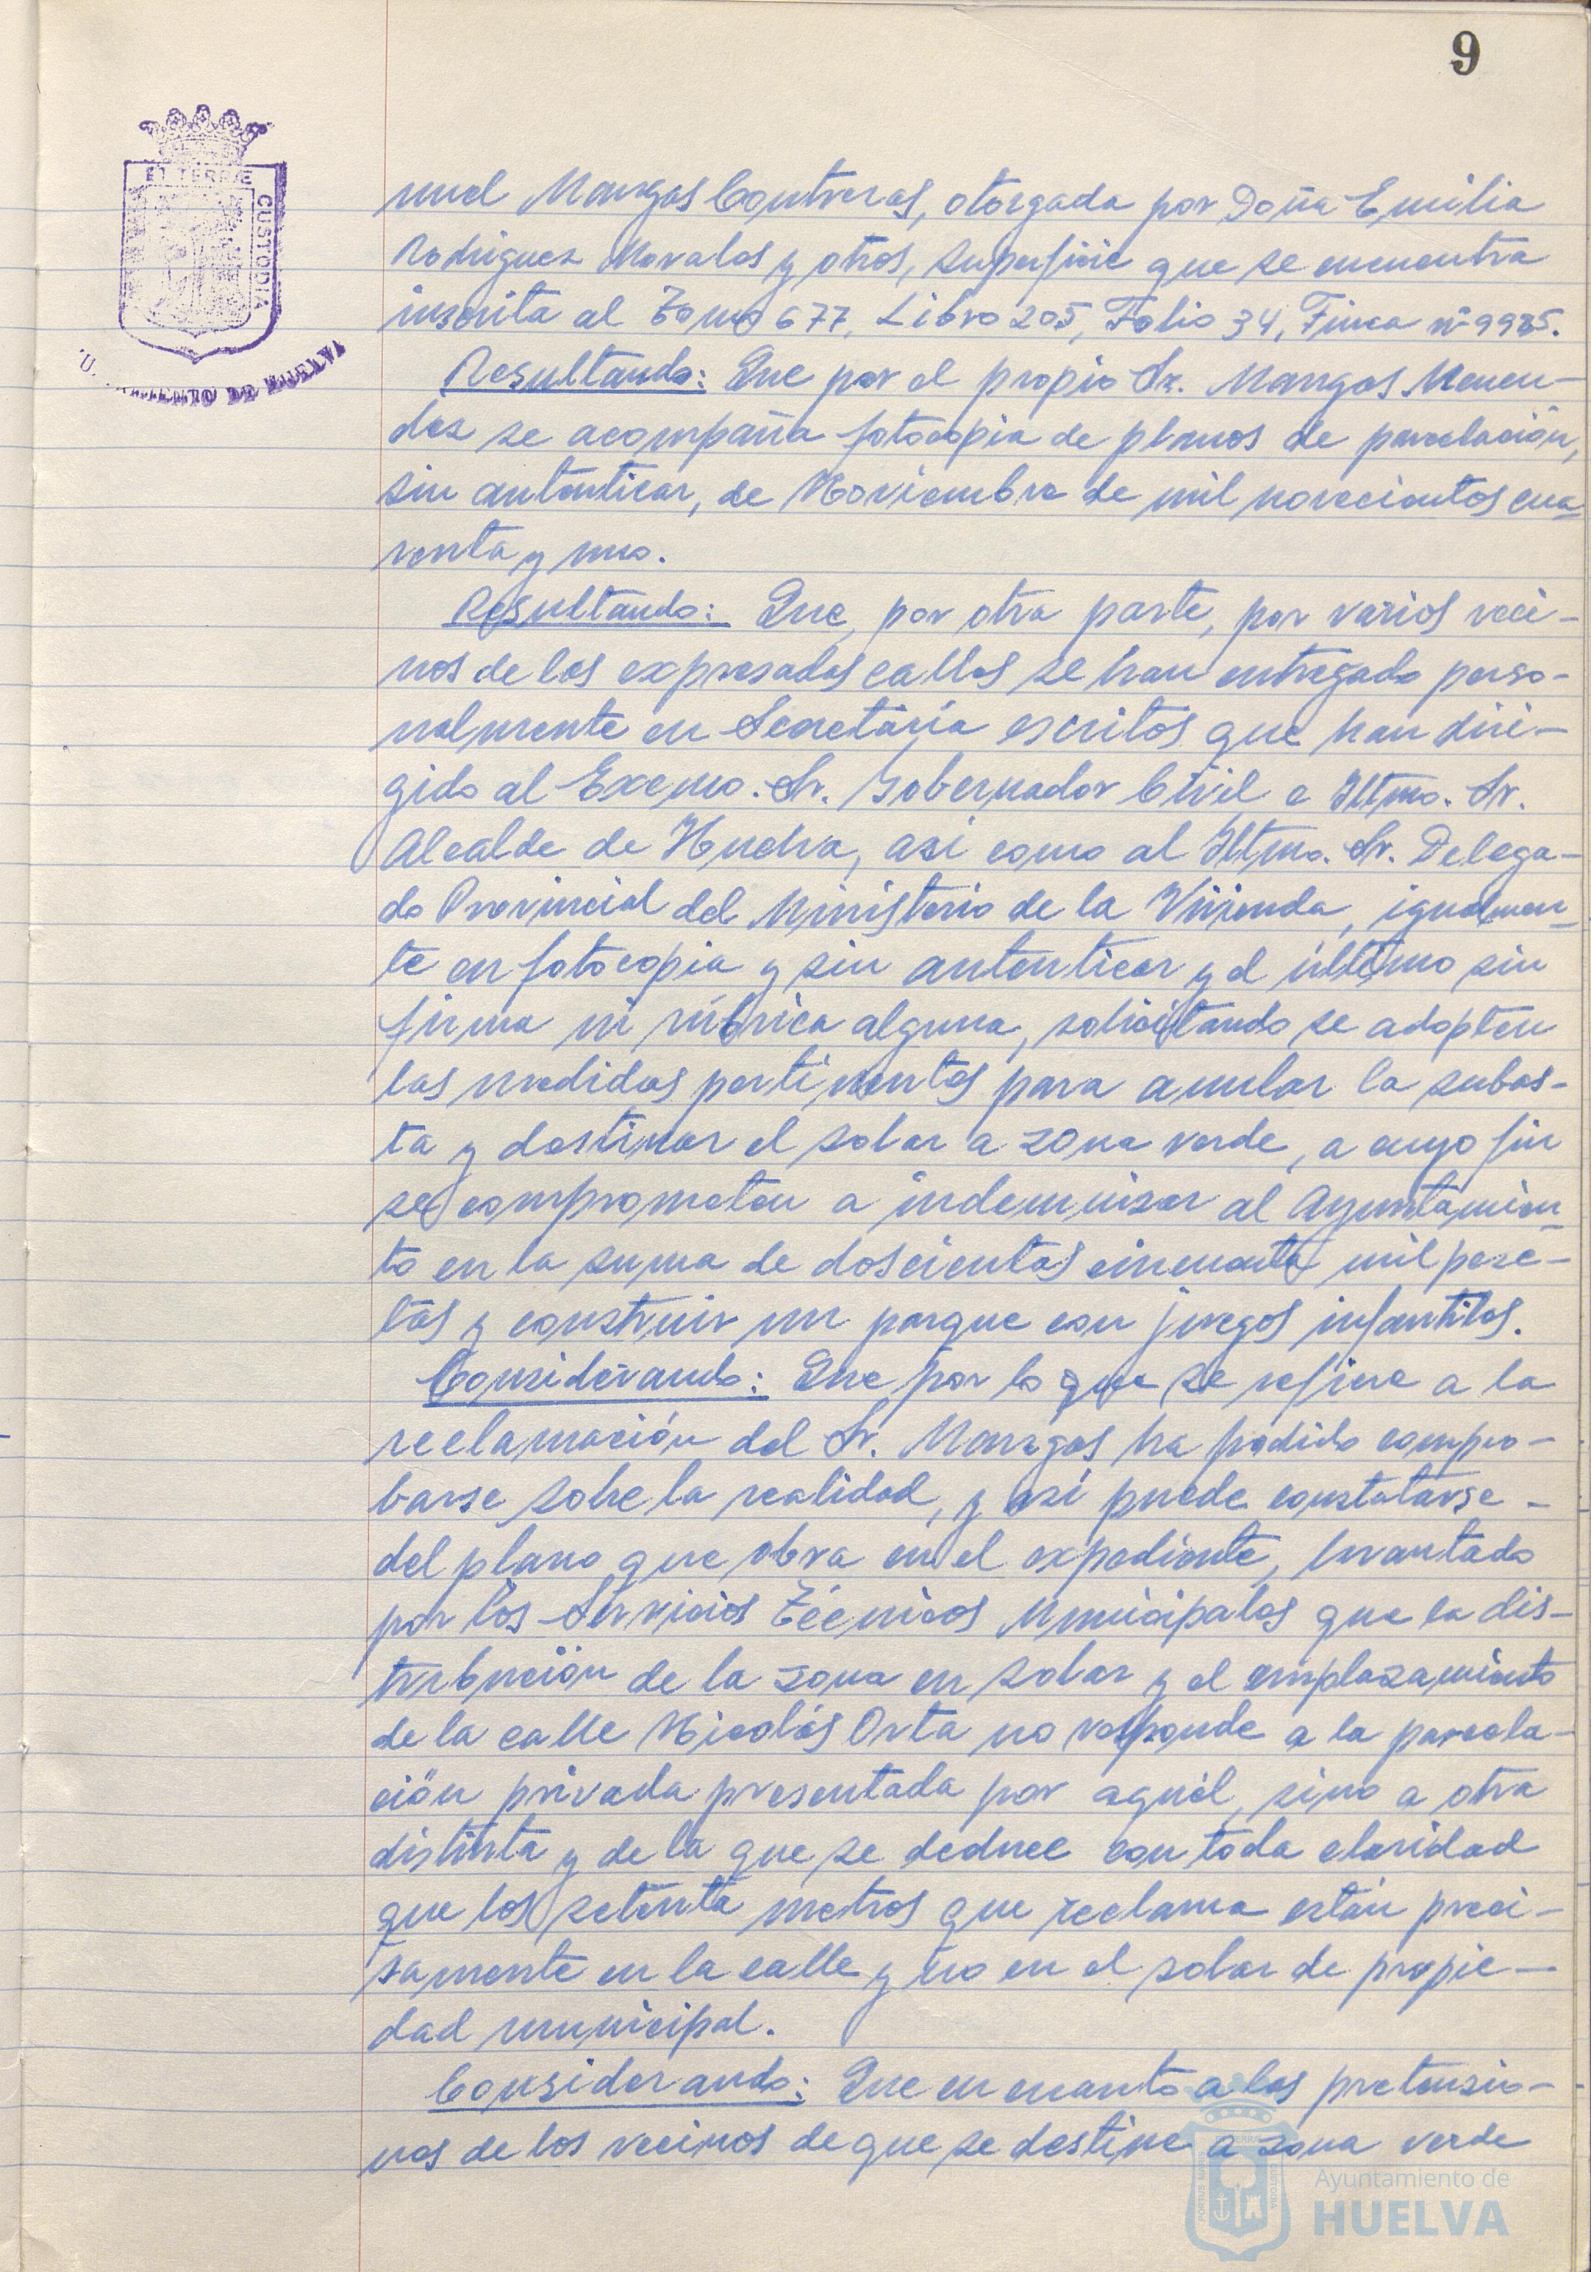 9
ET TERRÆ
CUSTODIA
nuel Mangas Contreras, otorgada por Doña Emilia
Rodriguez Morales y otros, superficie que se encuentra
inscrita al Tomo 677, Libro 205, Folio 34, Finca nº 9985.
Resultando: Que por el propio Sr. Mangas Menen-
dez se acompaña fotocopia de planos de parcelación,
sin autenticar, de Noviembre de mil novecientos cua-
renta y uno.
Resultando: Que, por otra parte, por varios veci-
nos de las expresadas calles se han entregado perso-
nalmente en Secretaría escritos que han diri-
gido al Excmo. Sr. Gobernador Civil e Iltmo. Sr.
Alcalde de Huelva, asi como al Iltmo. Sr. Delega-
do Provincial del Ministerio de la Vivienda, igualmen-
te en fotocopia y sin autenticar y el último sin
firma ni rúbrica alguna, solicitando se adopten
las medidas pertinentes para anular la subas-
ta y destinar el solar a zona verde, a cuyo fin
se comprometen a indemnizar al Ayuntamien-
to en la suma de doscientas cincuenta mil pese-
tas y construir un parque con juegos infantiles.
Considerando: Que por lo que se refiere a la
reclamación del Sr. Mangas ha podido compro-
barse sobre la realidad, y así puede constatarse -
del plano que obra en el expediente, levantado
por los Servicios Técnicos Municipales que la dis-
tribución de la zona en solar y el emplazamiento
de la calle Nicolás Orta no responde a la parcela-
ción privada presentada por aquél, sino a otra
distinta y de la que se deduce con toda claridad
que los setenta metros que reclama están preci-
samente en la calle y no en el solar de propie-
dad municipal.
Considerando: Que en cuanto a las pretensio-
nes de los vecinos de que se destine a zona verde
Ayuntamiento de
HUELVA